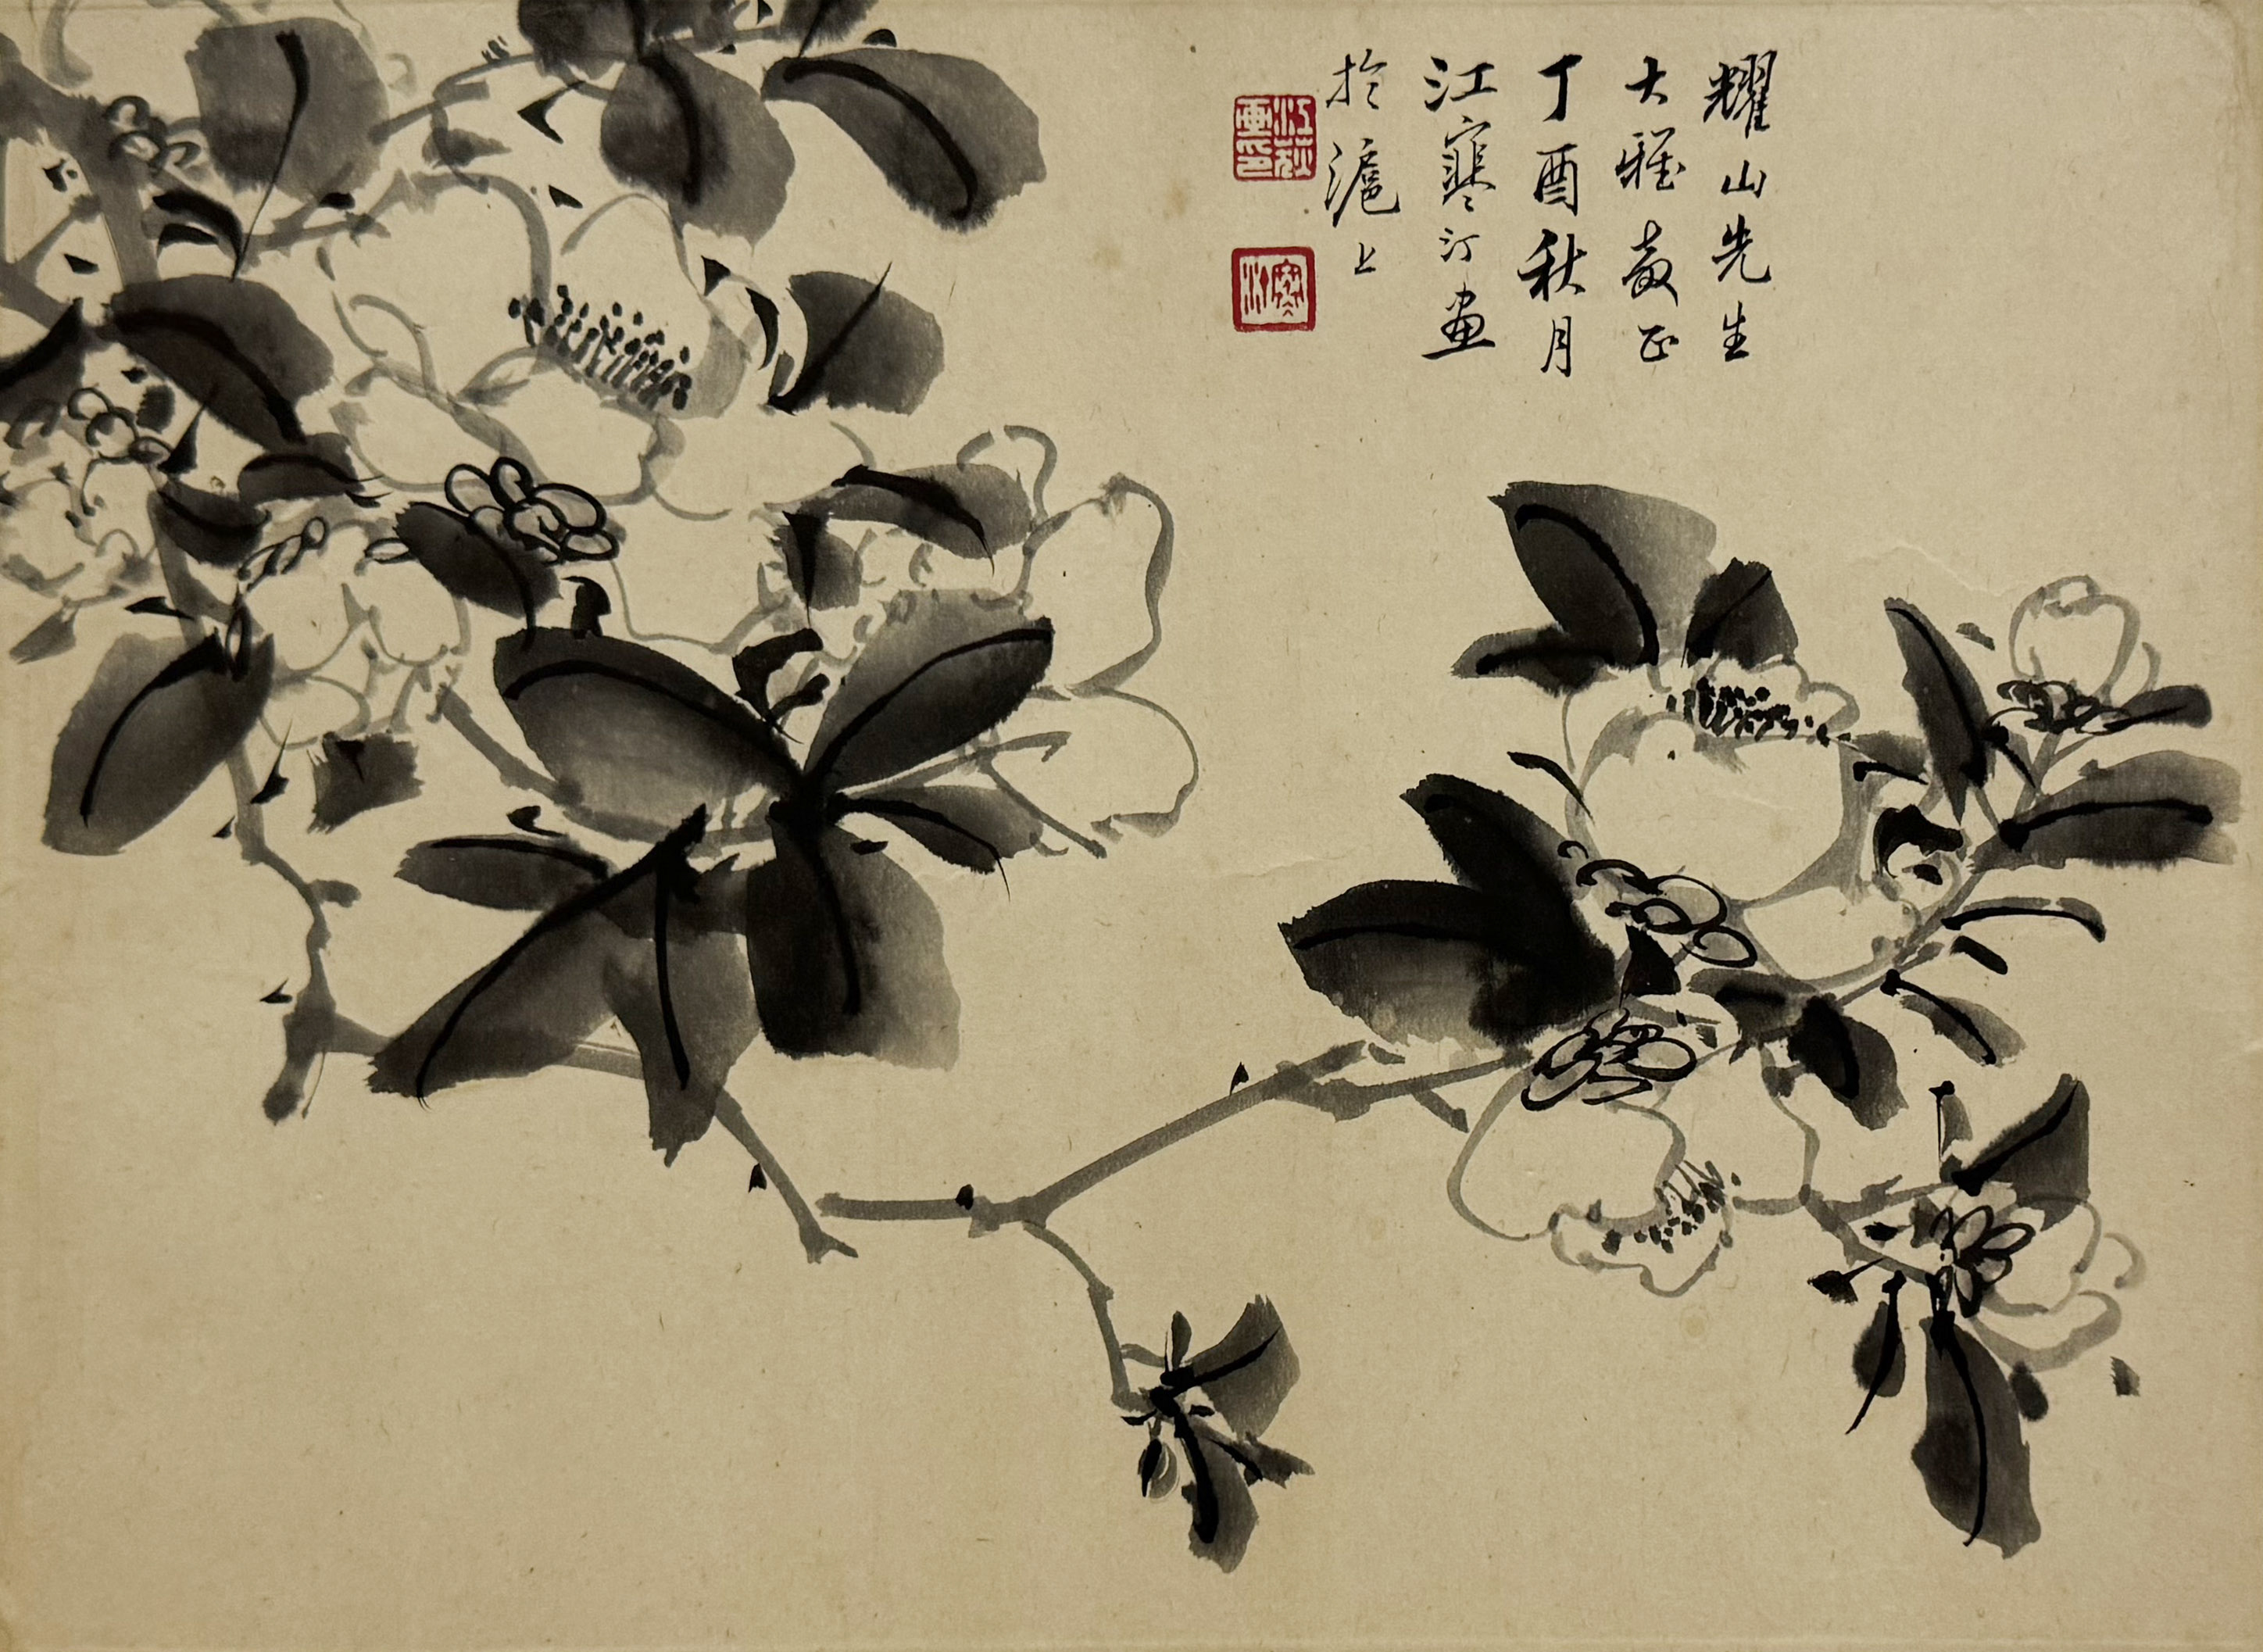 耀山先生
大雅教正
丁酉秋月
江寒汀画
於滬上
江荻画印
寒汀